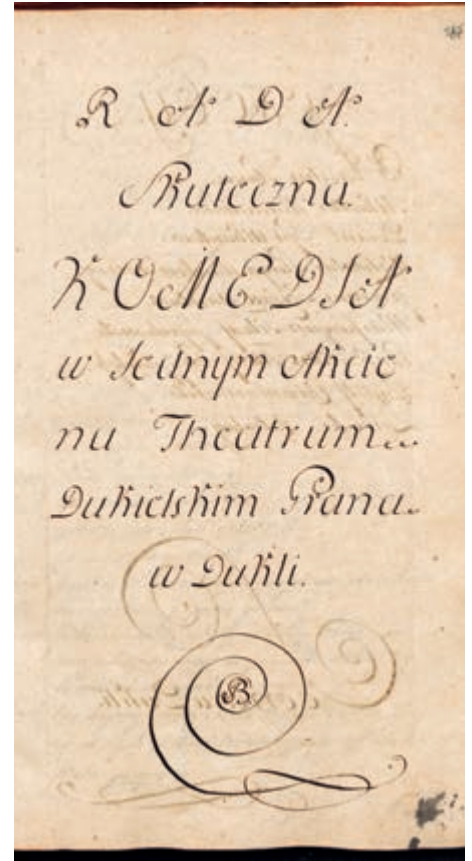 R A D A.
Skuteczna.
KOMEDIA
w Iednym Akcie
na Theatrum
Dukielskim Grana.
w Dukli.
B